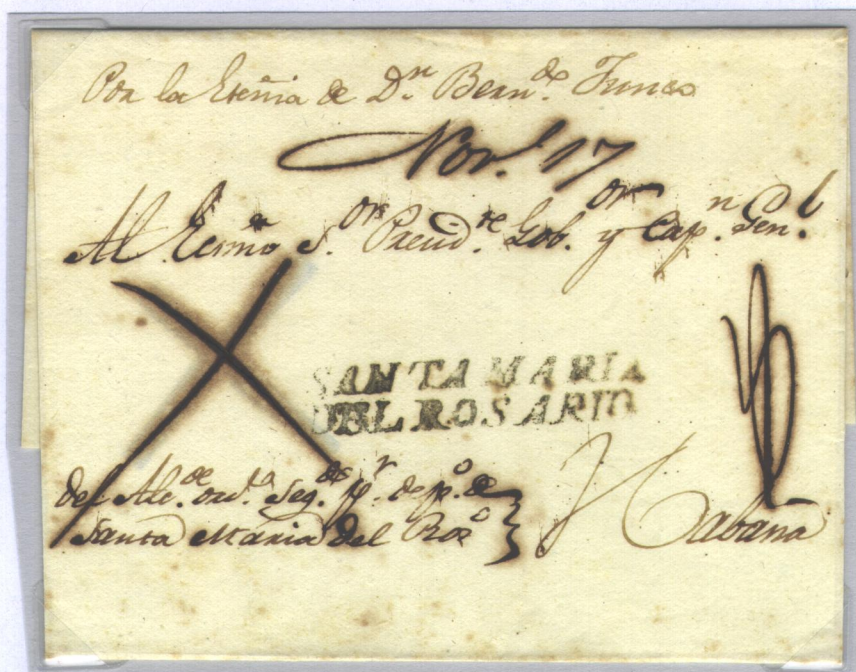 Por la Escñia de Dn Berndo Funes
Nove 17
Al Exmo Sor Presidte Gobor y Capn Genl
SANTA MARIA
DEL ROSARIO
del Alcde ordo Segdo pr depo de
Santa Maria del Roso
Habana